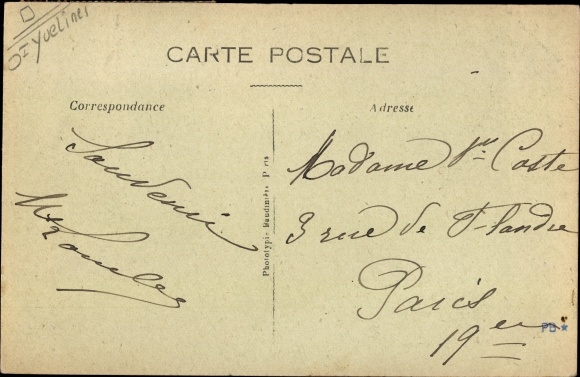 Dt Yvelines
CARTE POSTALE
Correspondance
Adresse
Souvenir
Madame Vve Coste
3 rue de Flandre
Paris
19er
Phototypie Baudinière, Paris
PB*